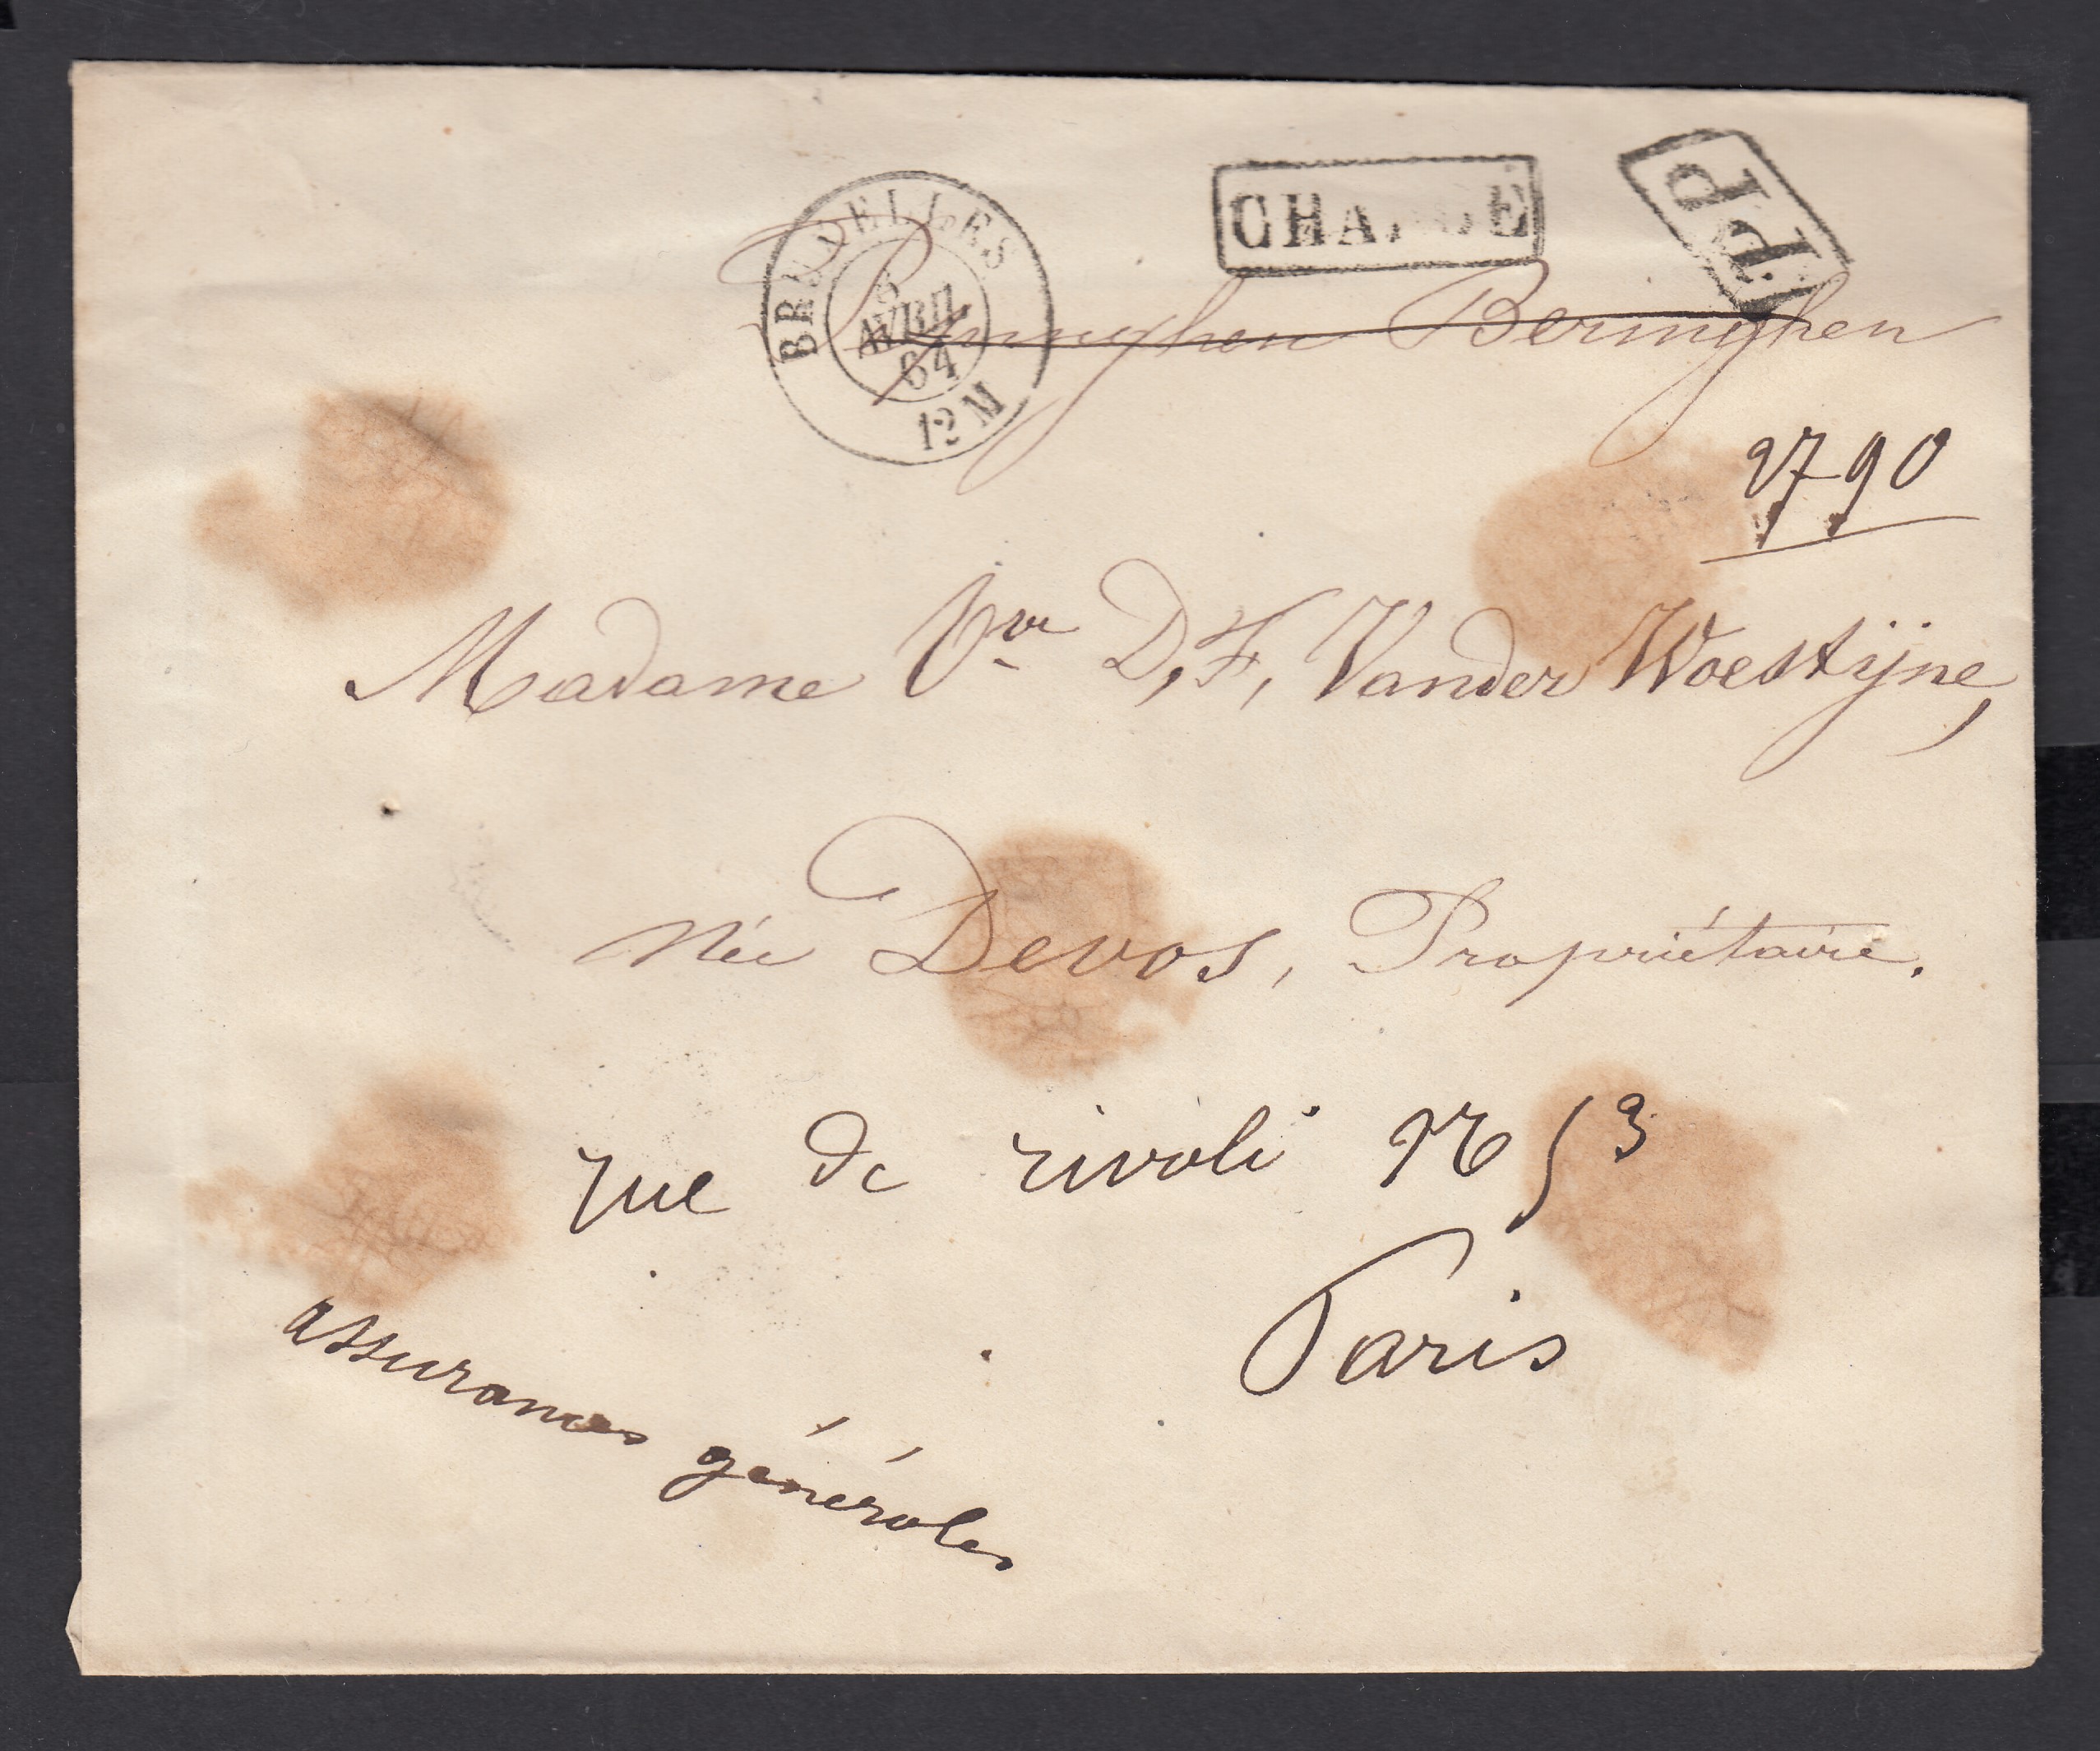 BRUXELLES
6
AVRIL
64
12 M
CHARGE
PP
Beringhen
2790
Madame Vve D, F, Vander Woestijne,
Née Devos, Propriétaire.
rue de rivoli
Paris
assurances générales